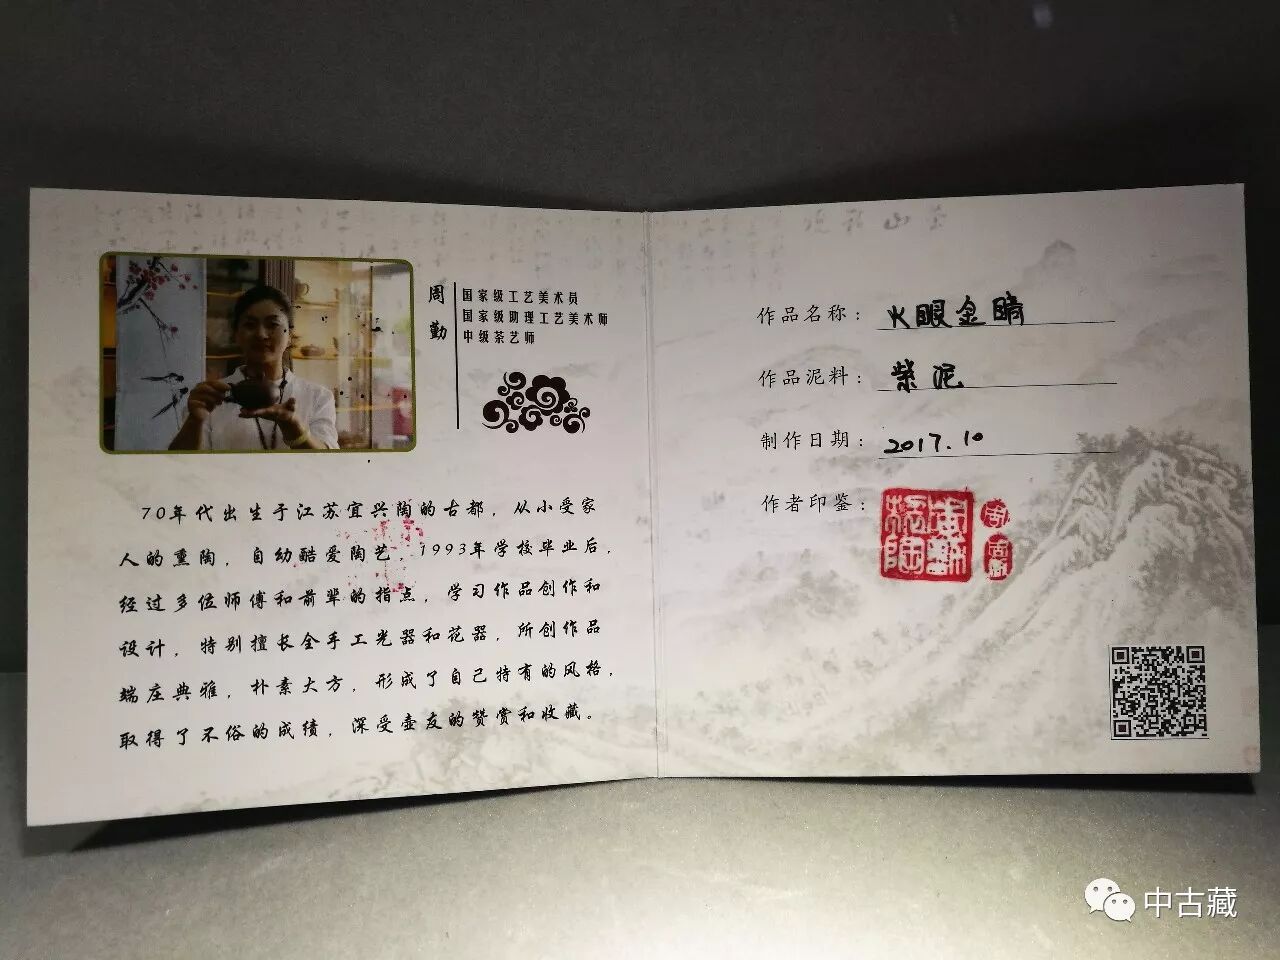 周勤
国家级工艺美术员
国家级助理工艺美术师
中级茶艺师
70年代出生于江苏宜兴陶的古都，从小受家
人的熏陶，自幼酷爱陶艺，1993年学校毕业后，
经过多位师傅和前辈的指点，学习作品创作和
设计，特别擅长全手工光器和花器，所创作品
端庄典雅，朴素大方，形成了自己特有的风格，
取得了不俗的成绩，深受壶友的赞赏和收藏。
作品名称：火眼金睛
作品泥料：紫泥
制作日期：2017.10
作者印鉴：
中古藏